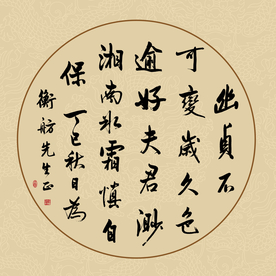 幽貞不
可變歲久色
逾好夫君渺
湘南冰霜慎自
保 丁巳秋日為
衡舫先生正